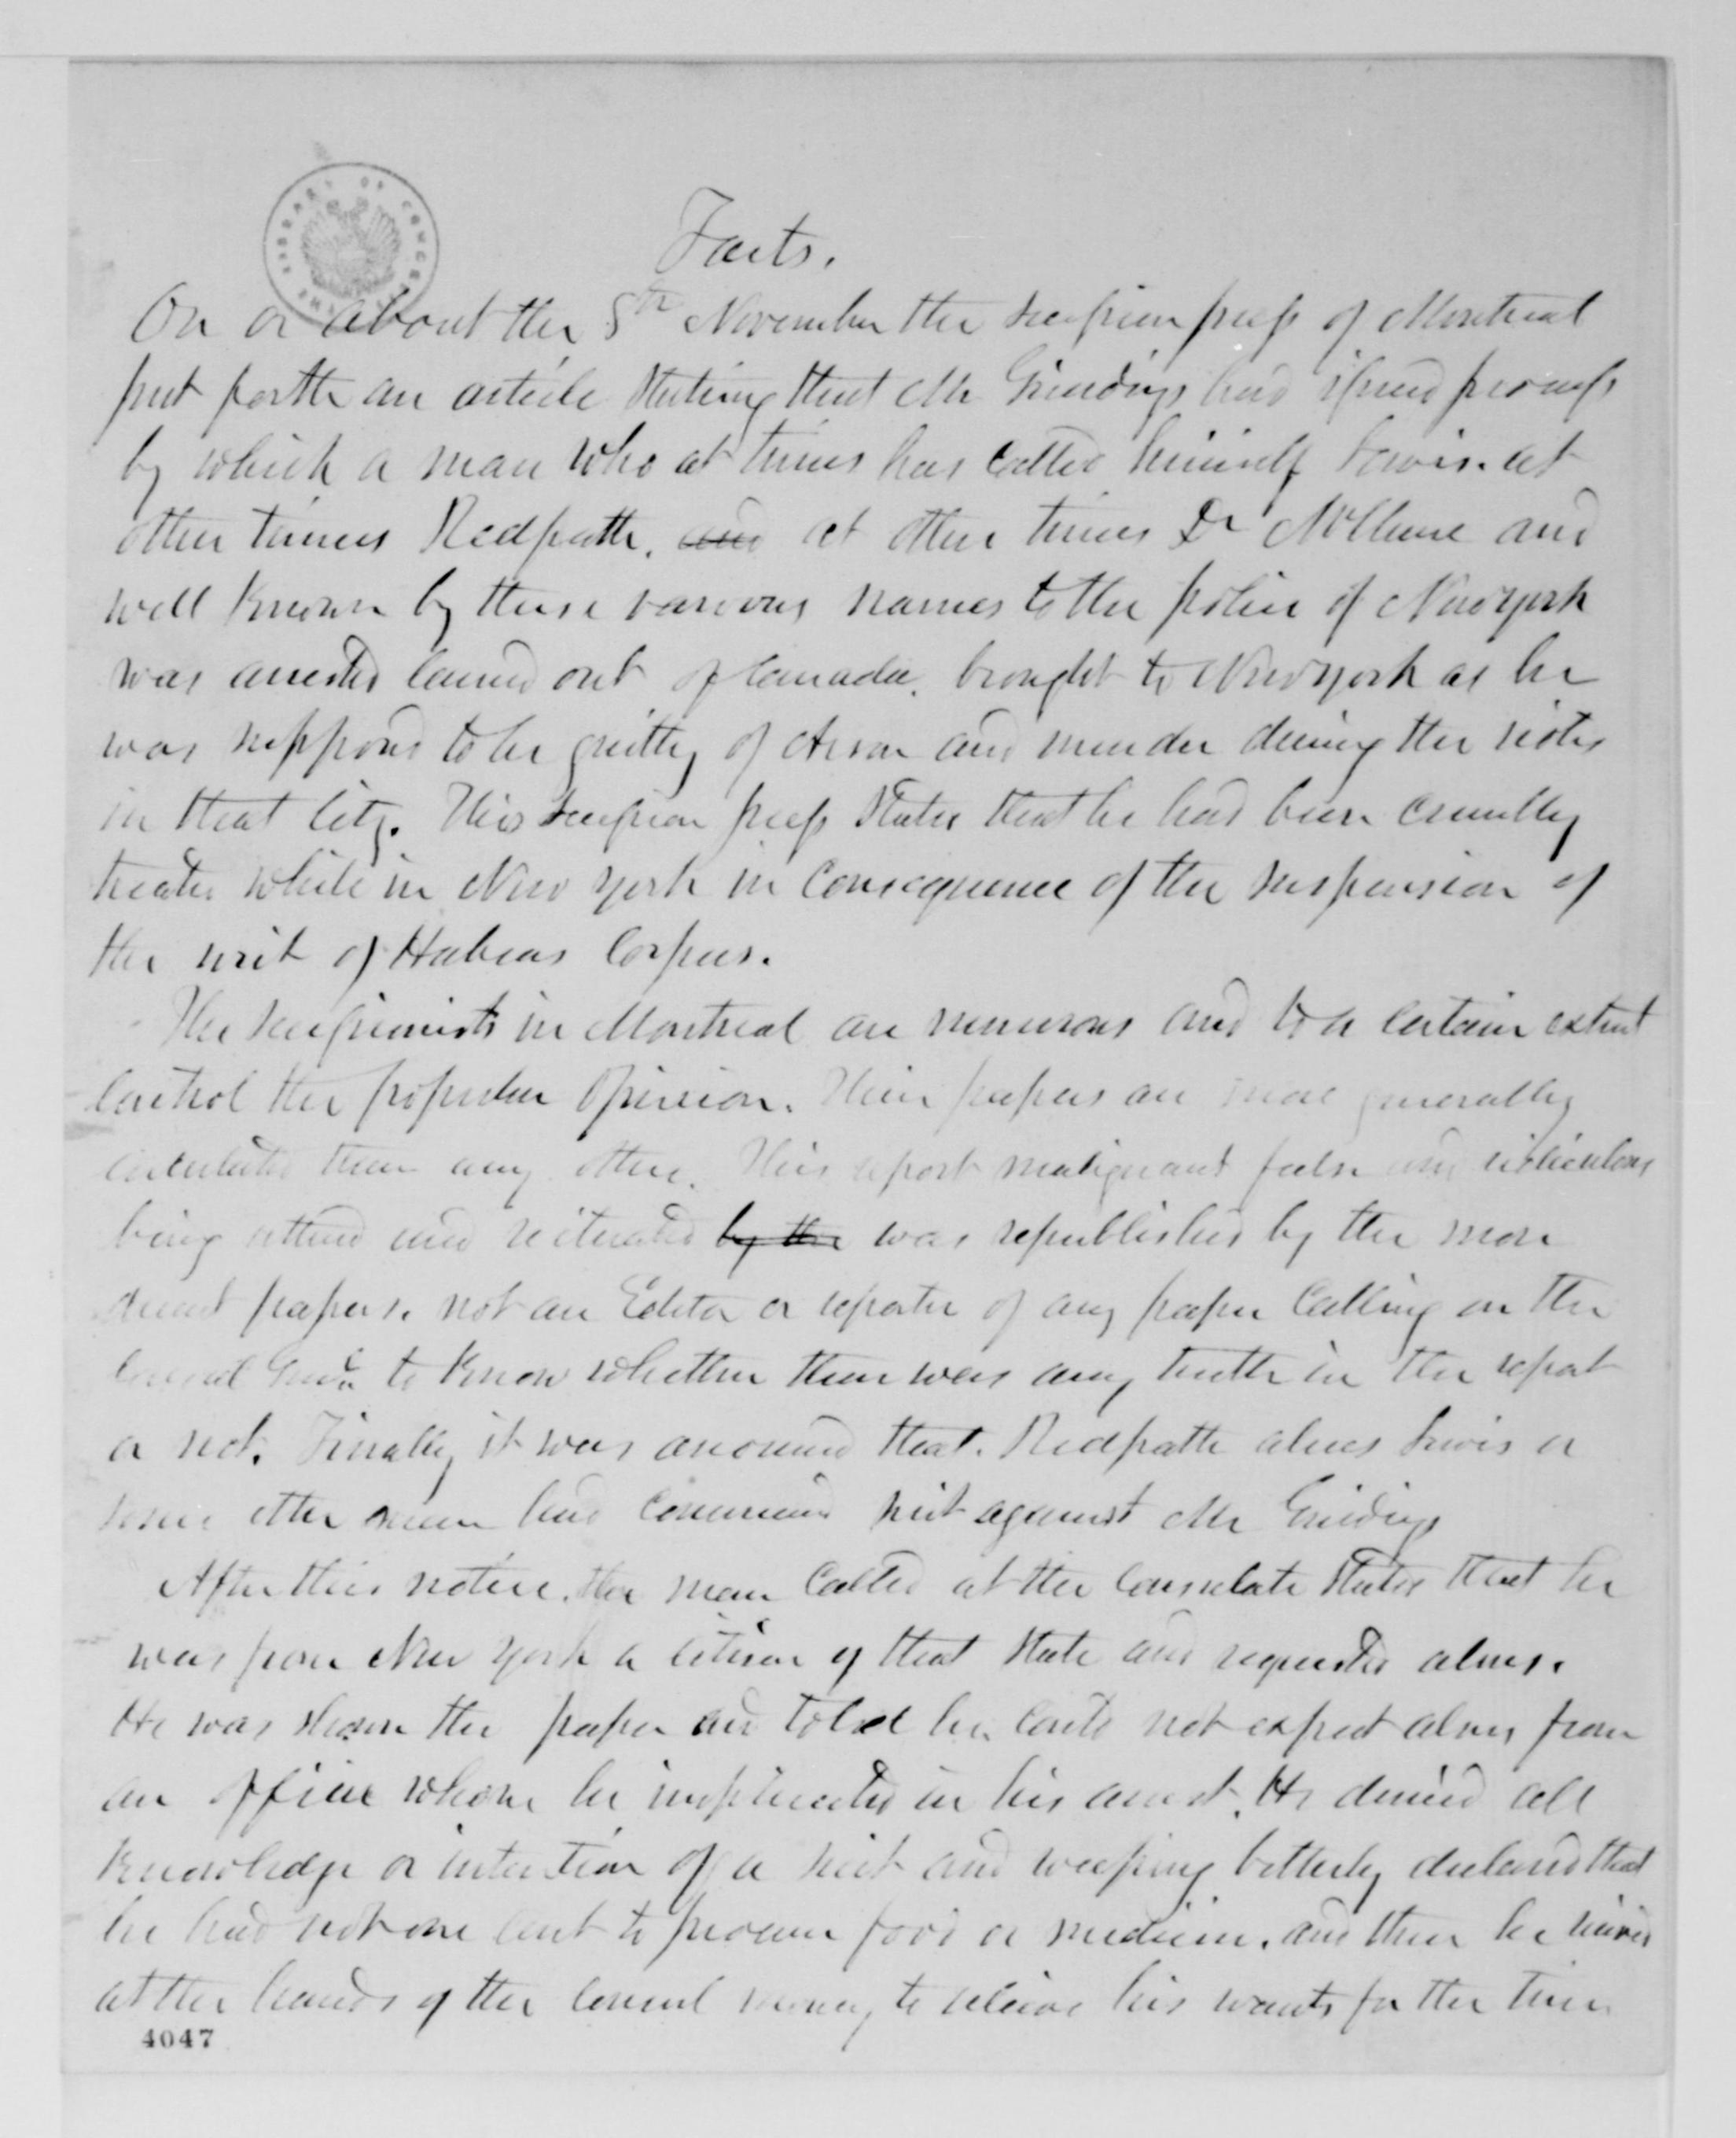 Facts.
On or about the 5th November the secession press of Montreal
put forth an article stating that Mr Giddings had issued process
by which a man who at times has called himself Lewis. at
other times Redpath. and at other times Dr and
well known by these various names to the police of New york
was arrested carried out of Canada, brought to New york as he
was supposed to be guilty of Arson and murder during the riots
in that City. This secession press states that he had been cruelly
treated while in New york in consequence of the suspension of
the writ of Habeas Corpus.
The secessionists in Montreal are numerous and to a certain extent
control the popular opinion. Their papers are more generally
circulated than any other. This report malignant false and ridiculous
being uttered and reiterated by the was republished by the more
decent papers. not an Editor or reporter of any paper Calling on the
Consul Genl. to know whether there was any truth in the report
or not. Finally it was anounced that. Redpath alias Lewis or
some other man had commenced suit against Mr Giddings
After this notice, the man Called at the Consulate stated that he
was from New York a citizen of that State and requested alms.
He was shown the paper and told he could not expect alms from
an officer whom he implicated in his arrest. He denied all
knowledge or intention of a suit and weeping bitterly declared that
he had not one cent to procure food or medicine. and then he received
at the hands of the Consul money to relieve his wants for the time
4047